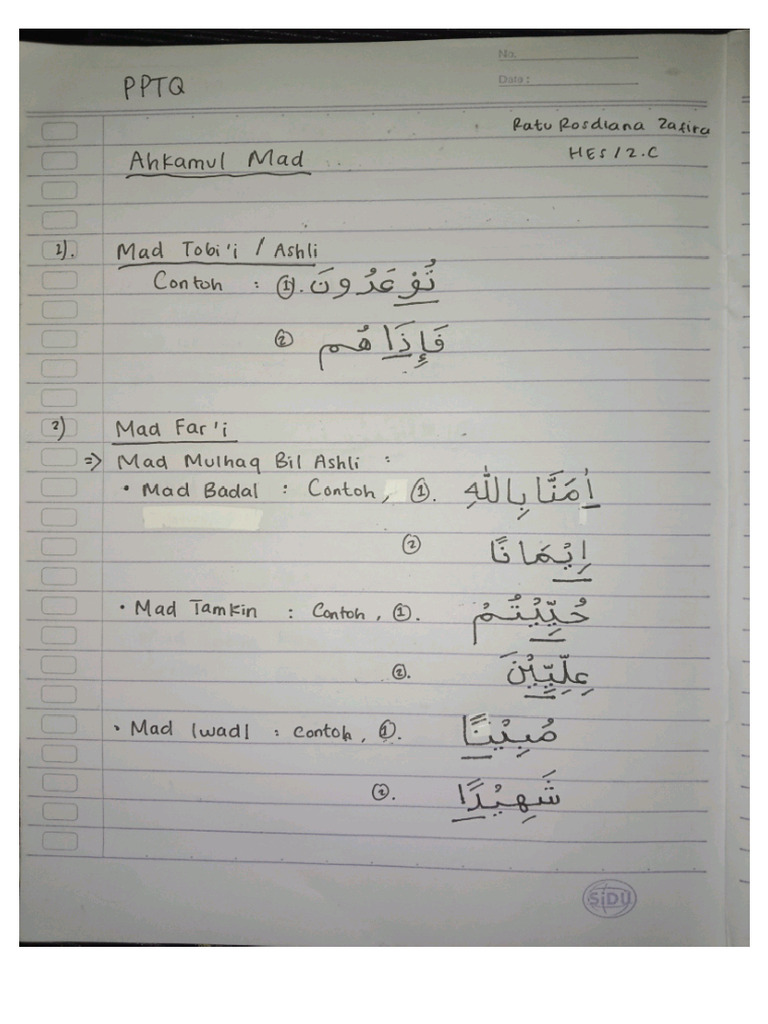 No.
Date :
PPTQ
Ratu Rosdiana Zafira
HES / 2.C
Ahkamul Mad
1). Mad Tobi'i / Ashli
Contoh : ①. تُوْعَدُونَ
② فَإِذَا هُم
2) Mad Far'i
=> Mad Mulhaq Bil Ashli :
• Mad Badal : Contoh, ①. اٰمَنَّا بِاللّٰهِ
② اِيْمَانًا
• Mad Tamkin : Contoh, ①. حُيِّيْتُمْ
②. عِلِّيِّيْنَ
• Mad Iwadl : Contoh, ①. مُبِيْنًا
②. شَهِيْدًا
SiDU